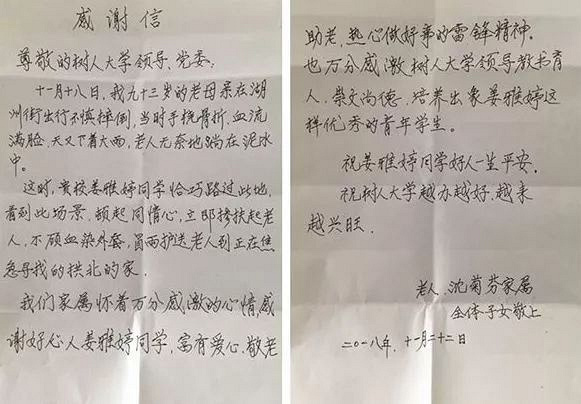 感谢信
尊敬的树人大学领导、党委：
十一月十八日，我九十三岁的老母亲在湖
州街出行不慎摔倒，当时手挽骨折，血流
满脸，天又下着大雨，老人无奈地躺在泥水
中。
这时，贵校姜雅婷同学恰巧路过此地，
看到此场景，顿起同情心，立即搀扶起老
人，不顾血染外套，冒雨护送老人到正在焦
急寻找的拱北的家。
我们家属怀着万分感激的心情感
谢好心人姜雅婷同学，富有爱心、敬老
助老，热心做好事的雷锋精神。
也万分感激树人大学领导教书育
人，崇文尚德，培养出象姜雅婷这
样优秀的青年学生。
祝姜雅婷同学好人一生平安，
祝树人大学越办越好，越来
越兴旺。
老人 沈菊芬家属
全体子女敬上
二〇一八年，十一月二十二日